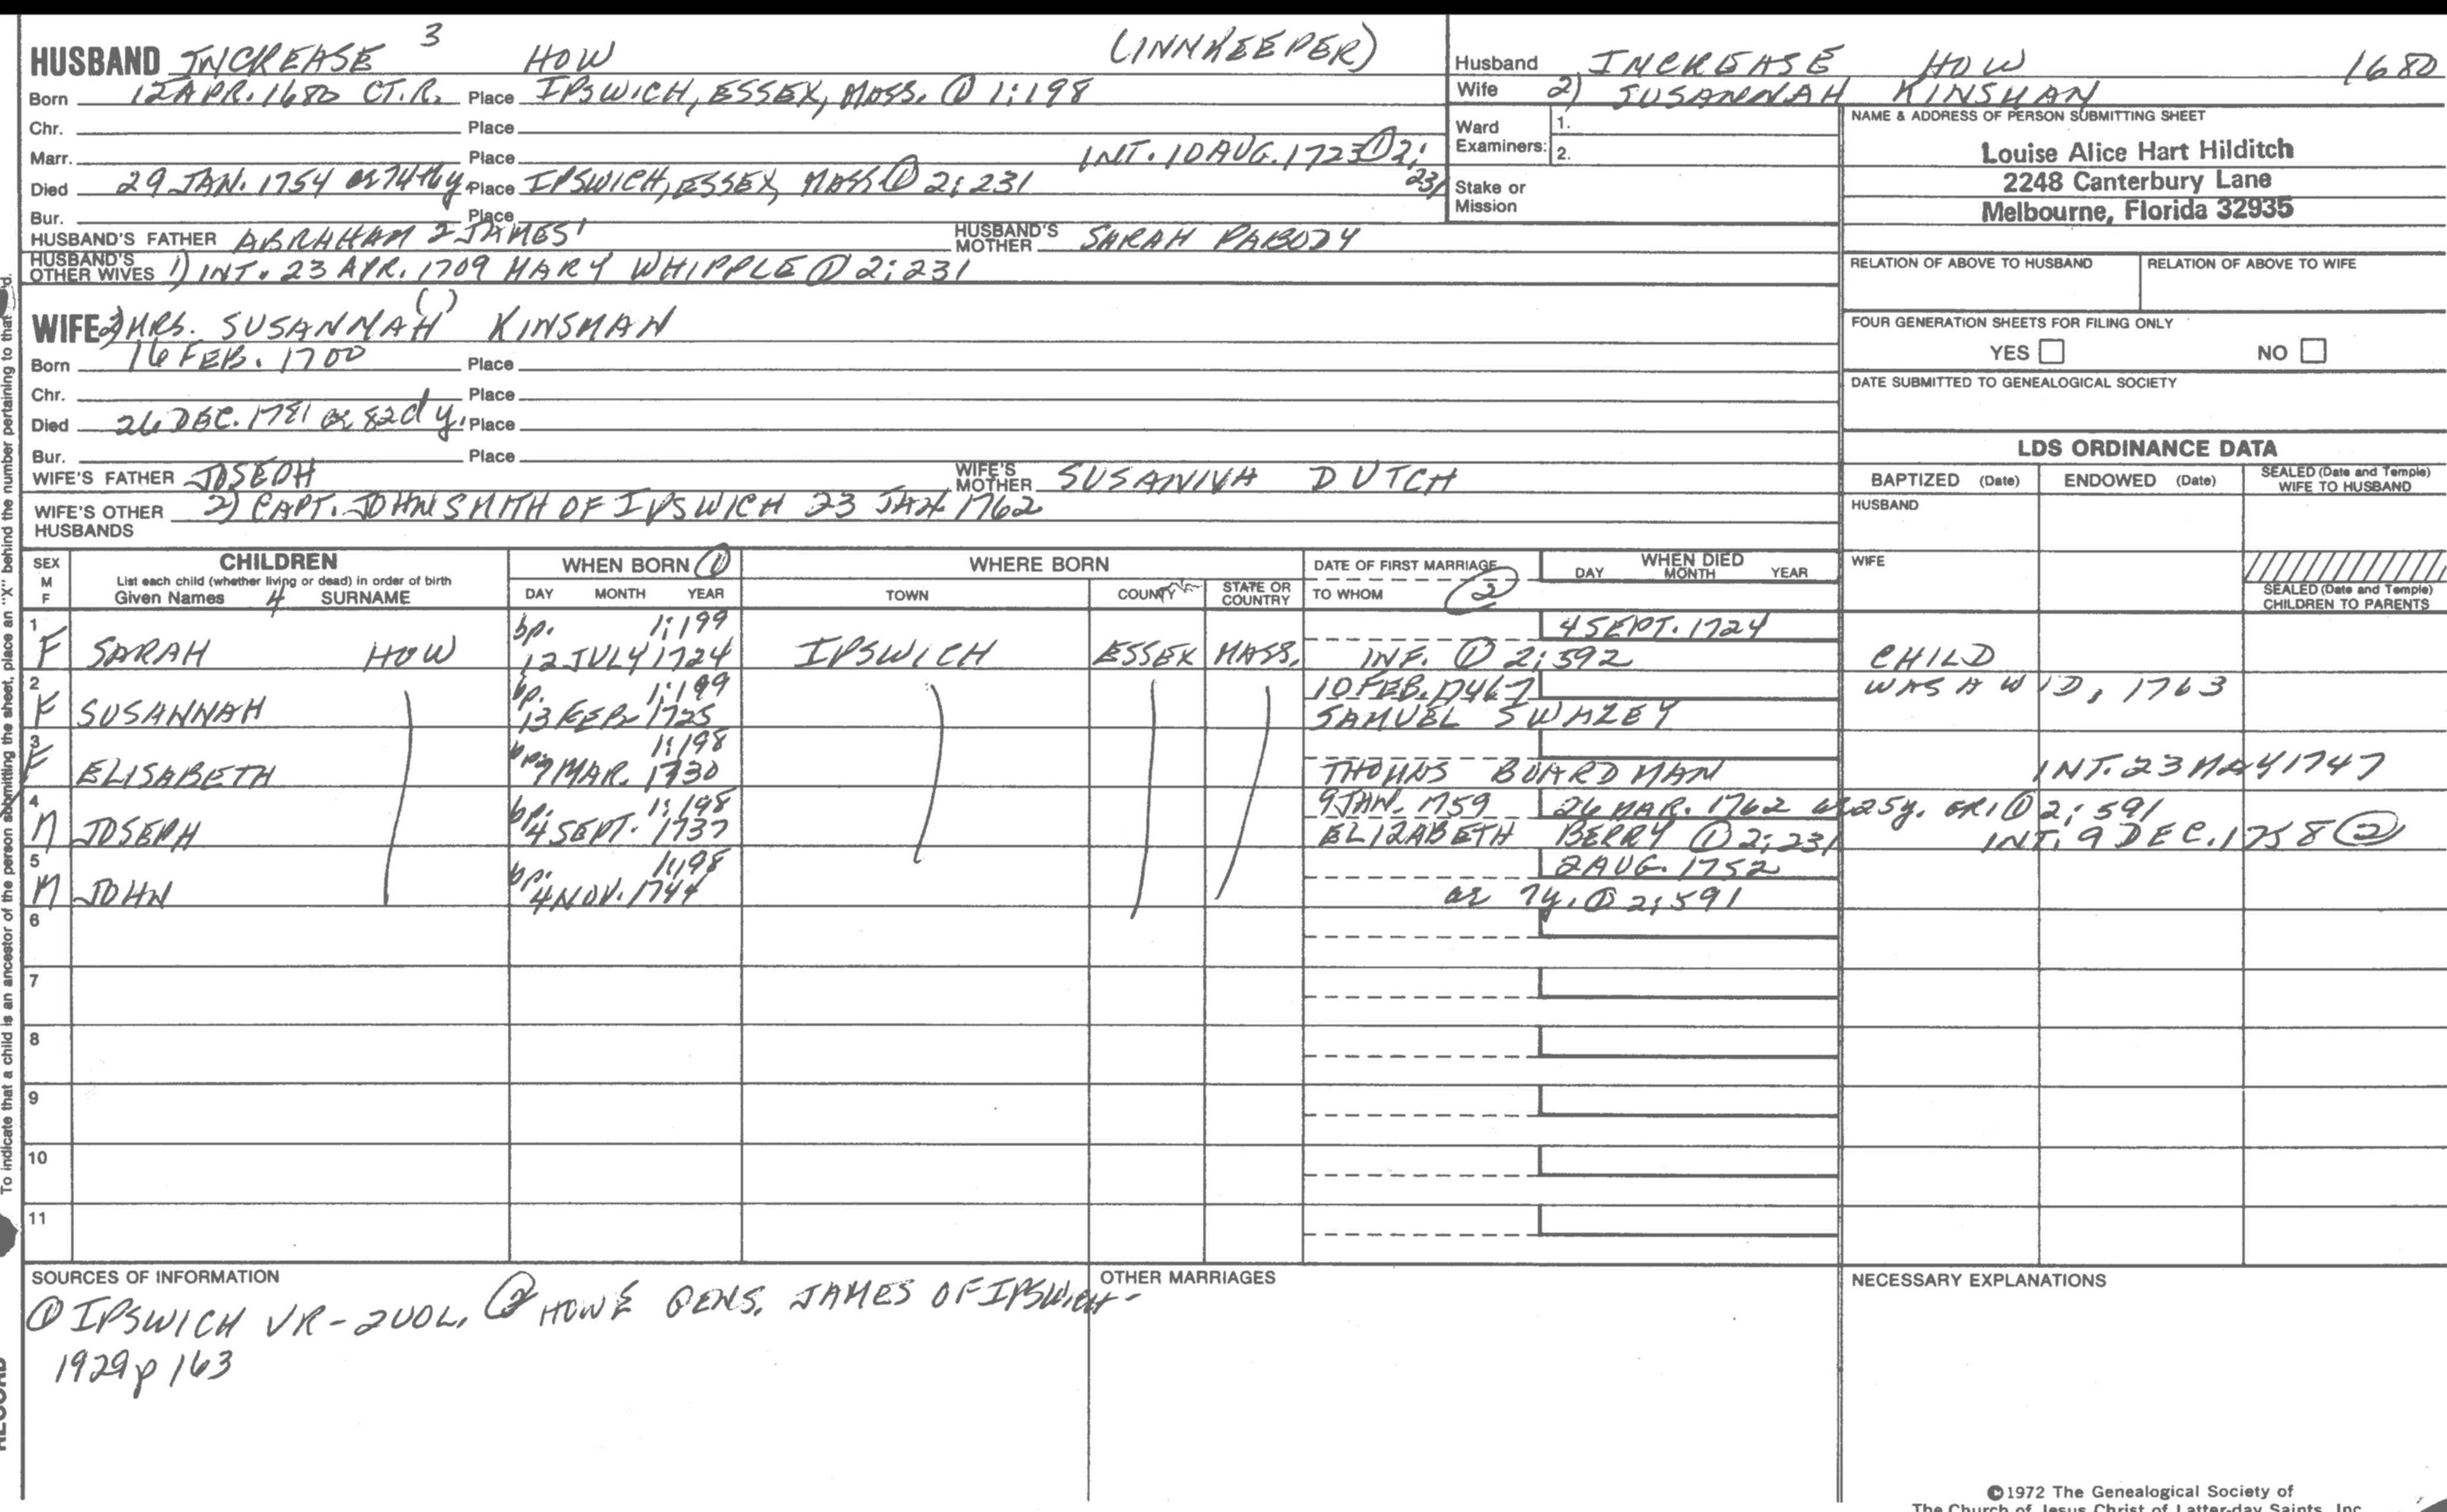 HUSBAND INCREASE 3 HOW (INNKEEPER)
Born 12 APR. 1680 CT.R. Place IPSWICH, ESSEX, MASS. ① 1:198
Chr. Place
Marr. Place INT. 10 AUG. 1723 ① 2:231
Died 29 JAN. 1754 ae 74thy. Place IPSWICH, ESSEX, MASS ① 2:231
Bur. Place
HUSBAND'S FATHER ABRAHAM 2 JAMES 1 HUSBAND'S MOTHER SARAH PABODY
HUSBAND'S OTHER WIVES 1) INT. 23 APR. 1709 MARY WHIPPLE ① 2:231
WIFE 2) MRS. SUSANNAH ( ) KINSMAN
Born 16 FEB. 1700 Place
Chr. Place
Died 26 DEC. 1781 ae 82d y. Place
Bur. Place
WIFE'S FATHER JOSEPH WIFE'S MOTHER SUSANNA DUTCH
WIFE'S OTHER HUSBANDS 2) CAPT. JOHN SMITH OF IPSWICH 23 JAN 1762
Husband INCREASE HOW 1680
Wife 2) SUSANNAH KINSMAN
Ward Examiners: 1.
2.
Stake or Mission
NAME & ADDRESS OF PERSON SUBMITTING SHEET
Louise Alice Hart Hilditch
2248 Canterbury Lane
Melbourne, Florida 32935
RELATION OF ABOVE TO HUSBAND RELATION OF ABOVE TO WIFE
FOUR GENERATION SHEETS FOR FILING ONLY
YES NO
DATE SUBMITTED TO GENEALOGICAL SOCIETY
LDS ORDINANCE DATA
BAPTIZED (Date) ENDOWED (Date) SEALED (Date and Temple) WIFE TO HUSBAND
HUSBAND
WIFE
SEALED (Date and Temple) CHILDREN TO PARENTS
SEX M F CHILDREN WHEN BORN ① WHERE BORN DATE OF FIRST MARRIAGE WHEN DIED
List each child (whether living or dead) in order of birth
Given Names 4 SURNAME DAY MONTH YEAR TOWN COUNTY STATE OR COUNTRY TO WHOM ② DAY MONTH YEAR
1 bp. 1:199 4 SEPT. 1724
F SARAH HOW 12 JULY 1724 IPSWICH ESSEX MASS. INF. ① 2:592 CHILD
2 bp. 1:199 10 FEB. 1746/7 WAS A WID, 1763
F SUSANNAH 13 FEB 1725 SAMUEL SWAZEY
3 bp. 1:198
F ELISABETH 7 MAR. 1730 THOMAS BOARDMAN INT. 23 MAY 1747
4 bp. 1:198 9 JAN. 1759 26 MAR. 1762 ae 25y. GR1 ① 2:591
M JOSEPH 4 SEPT. 1737 ELIZABETH BERRY ① 2:231 INT. 9 DEC. 1758 ②
5 bp. 1:198 2 AUG. 1752
M JOHN 4 NOV. 1744 ae 7y. ① 2:591
6
7
8
9
10
11
SOURCES OF INFORMATION
① IPSWICH VR - 2 VOL. ② HOWE GENS. JAMES OF IPSWICH -
1929 p 163
OTHER MARRIAGES
NECESSARY EXPLANATIONS
©1972 The Genealogical Society of
The Church of Jesus Christ of Latter-day Saints, Inc.
To indicate that a child is an ancestor of the person submitting the sheet, place an "X" behind the number pertaining to that
RECORD